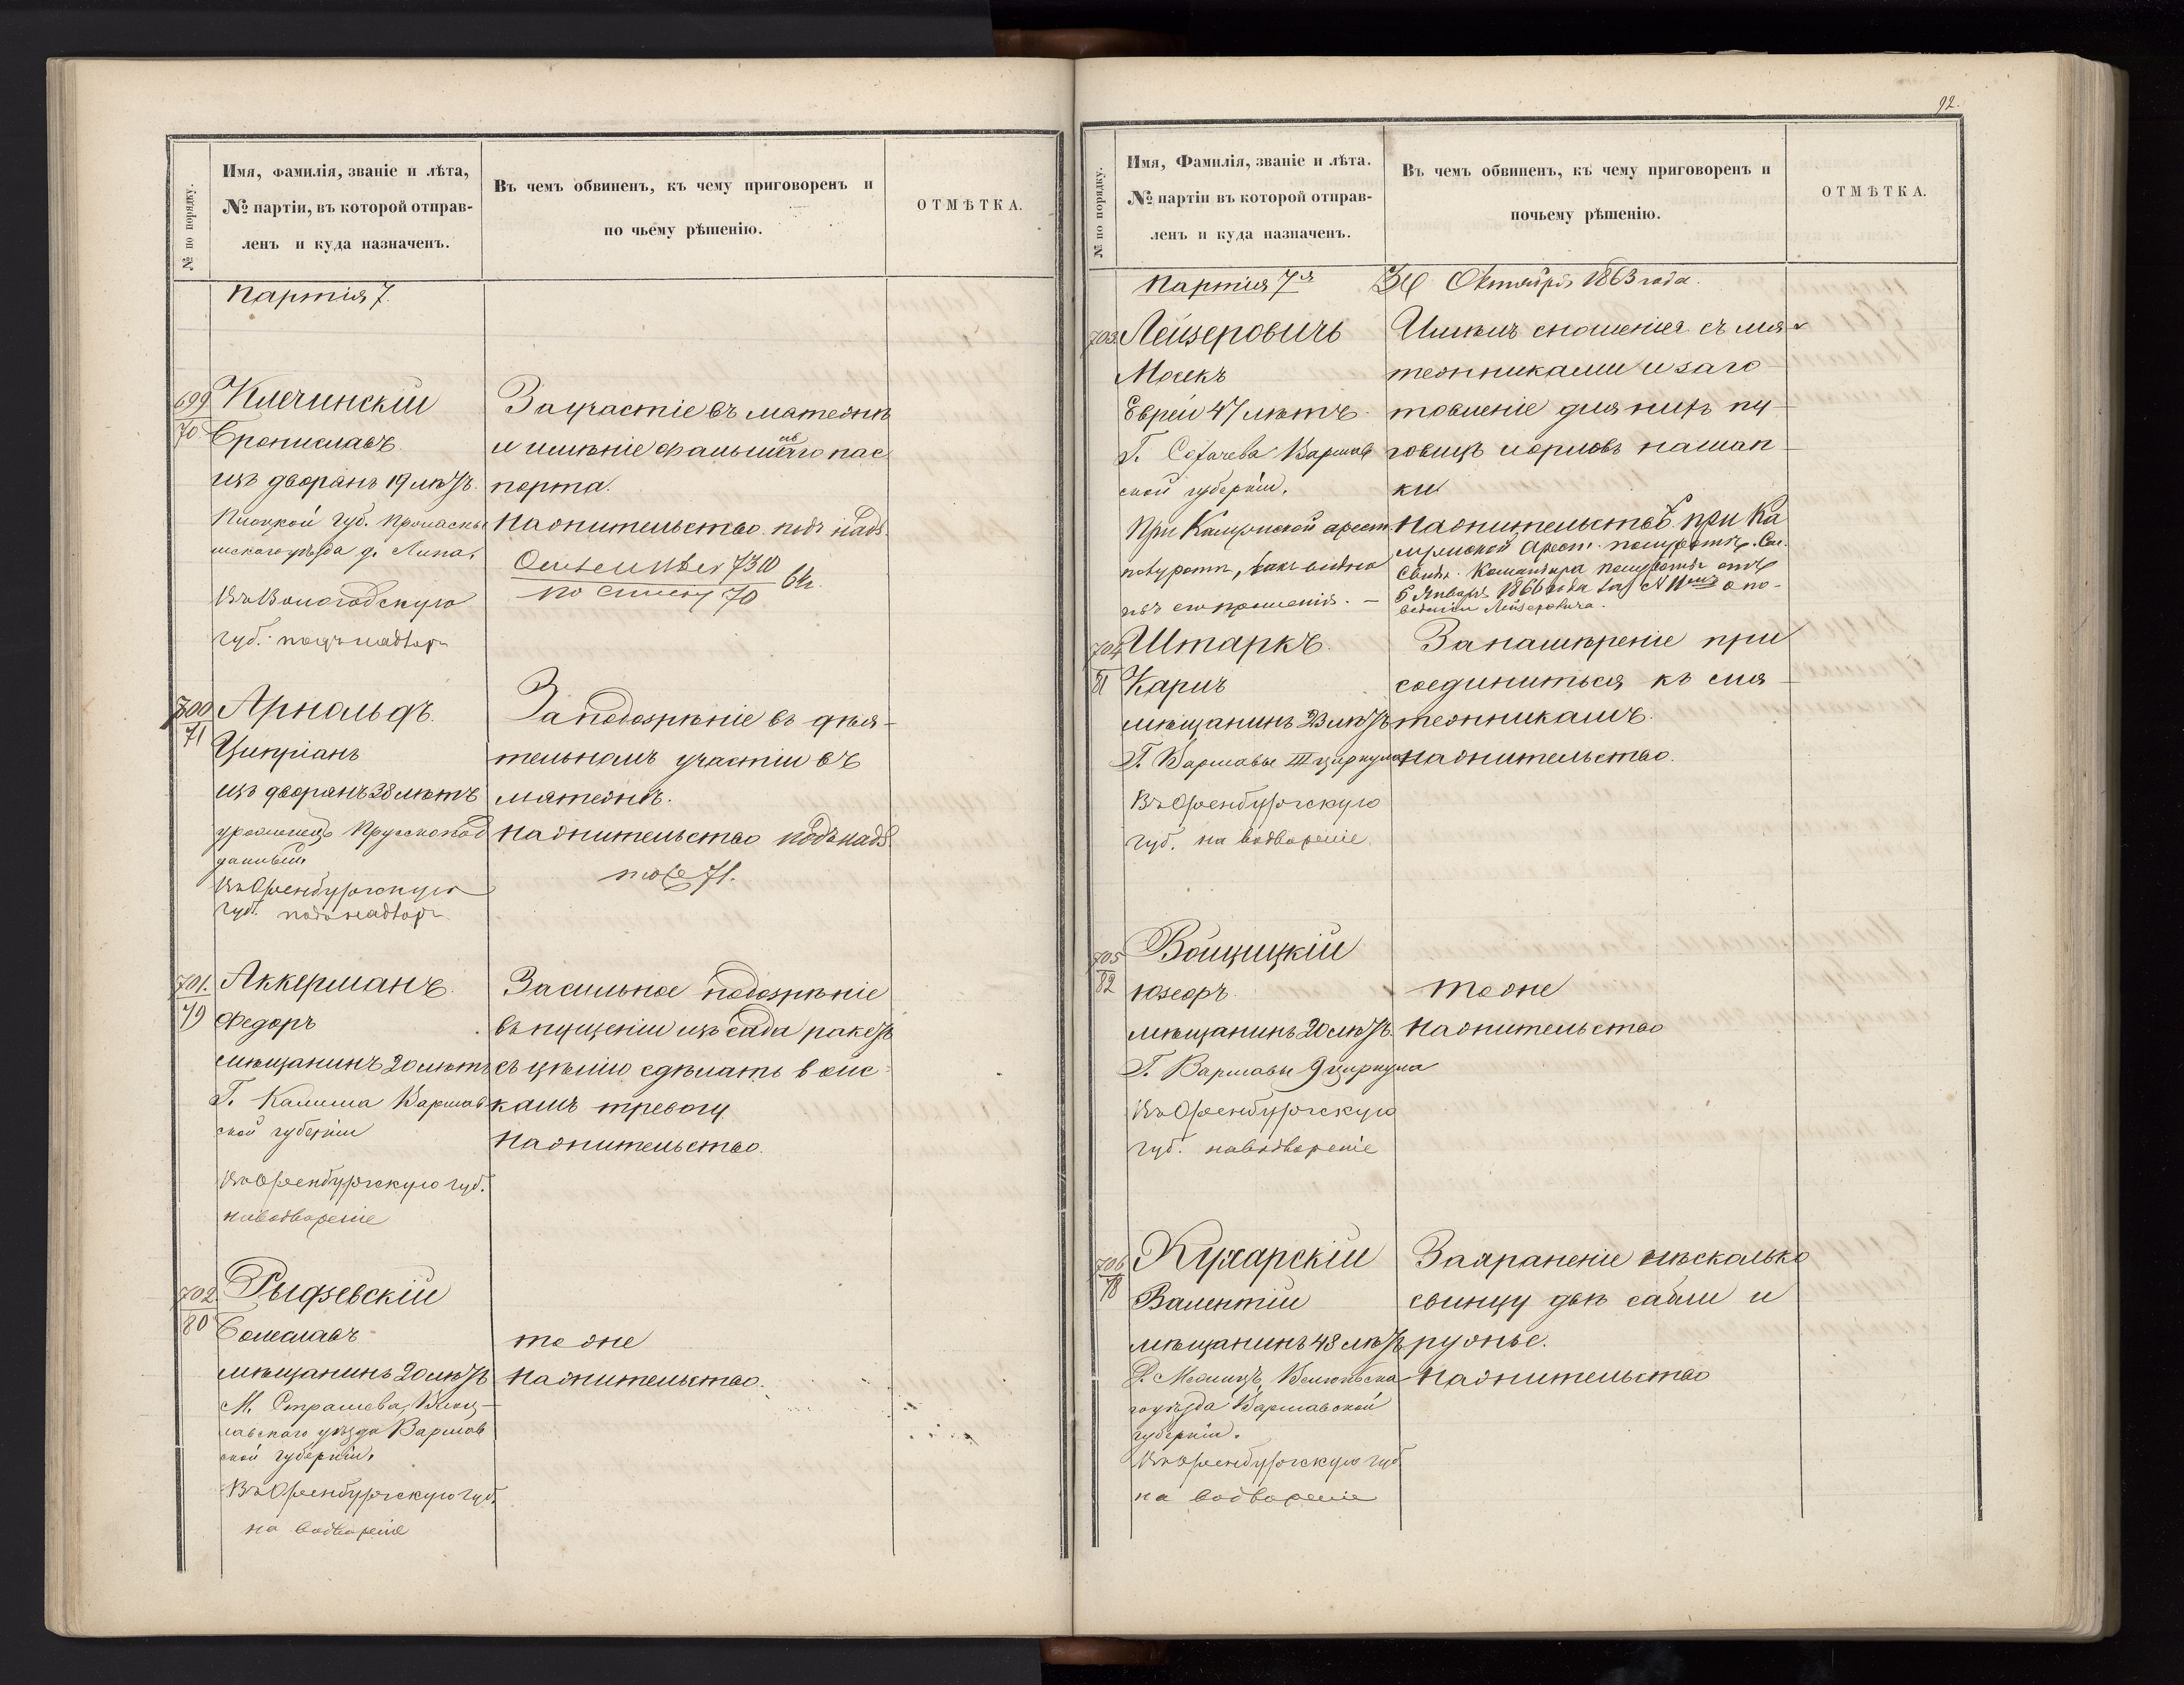 № по порядку.
Имя, фамилія, званіе и лѣта,
№ партіи, въ которой отправ-
ленъ и куда назначенъ.
Въ чемъ обвиненъ, къ чему приговоренъ и
по чьему рѣшенію.
ОТМѢТКА.
Партія 7.
699
70
Клечинскій
Брониславъ
изъ дворянъ 19 лѣтъ.
Плоцкой губ. Пр
уѣзда д. Липа,
Въ Вологодскую
губ. подъ надзоръ
За участіе въ мятежѣ
и имѣніе фальшиваго пас
порта.
На жительство подъ надз.
7310
по списку 70
700
71
Арнольдъ
Ципріанъ
изъ дворянъ 38 лѣтъ
уроженецъ Прусскопод
данный
Въ Оренбургскую
губ. подъ надзоръ
За подозрѣніе въ дѣя-
тельномъ участіи въ
мятежѣ.
На жительство подъ надз.
тоже 71.
701.
79
Аккерманъ
Федоръ
мѣщанинъ 20 лѣтъ
Г. Калиша Варшав
ской губерніи
Въ Оренбургскую губ.
на водвореніе
За сильное подозрѣніе
въ пущеніи изъ сада ракетъ
съ цѣлію сдѣлать войс-
камъ тревогу
На жительство.
702.
80
Рыдзевскій
Болеславъ
мѣщанинъ 20 лѣтъ
М. Страшева, Влоц-
лавскаго уѣзда Варшав
ской губерніи.
Въ Оренбургскую губ.
на водвореніе
тоже
На жительство.
92.
№ по порядку.
Имя, Фамилія, званіе и лѣта.
№ партіи въ которой отправ-
ленъ и куда назначенъ.
Въ чемъ обвиненъ, къ чему приговоренъ и
почьему рѣшенію.
ОТМѢТКА.
Партія 7я
Октября 1863 года.
703.
Лейзеровичъ
Мошкъ
Еврей 47 лѣтъ
Г. Сохачева Варшав
ской губерніи.
При арест.
полуротѣ, какъ видно
изъ его прошенія. —
Имѣлъ сношенія съ мя-
тежниками и заго
товленіе для нихъ пу-
говицъ и орловъ на шап-
ки
На жительство при Ка
арест. полуротѣ. См.
Командира полуроты отъ
5 Января 1866 года за № 11мъ о по-
веденіи Лейзеровича.
704
81
Штаркъ
Карлъ
мѣщанинъ 23 лѣтъ
Г. Варшавы III циркула
Въ Оренбургскую
губ. на водвореніе.
За намѣреніе при
соединиться къ мя-
тежникамъ.
На жительство.
705
82
Войцицкій
Юзефъ
мѣщанинъ 20 лѣтъ.
Г. Варшавы 9 циркула
Въ Оренбургскую
губ. на водвореніе
тоже
На жительство
706
78
Кухарскій
Валентій
мѣщанинъ 48 лѣтъ
Велюньска
го уѣзда Варшавской
губерніи.
Въ Оренбургскую губ
на водвореніе
За храненіе нѣсколько
свинцу двѣ сабли и
ружье.
На жительство